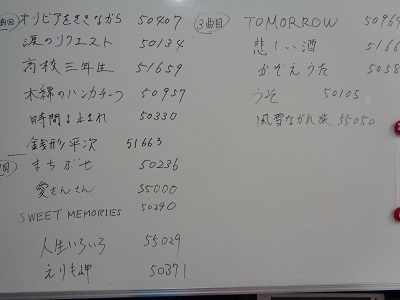 曲目 オリビアをききながら 50407
涙のリクエスト 50134
高校三年生 51659
木綿のハンカチーフ 50957
時間よ止まれ 50330
銭形平次 51663
まちぶせ 50236
愛さんさん 55000
SWEET MEMORIES 50290
人生いろいろ 55029
えりも岬 50371
3曲目 TOMORROW 50969
悲しい酒 5166
かぞえうた 5058
うそ 50105
55050